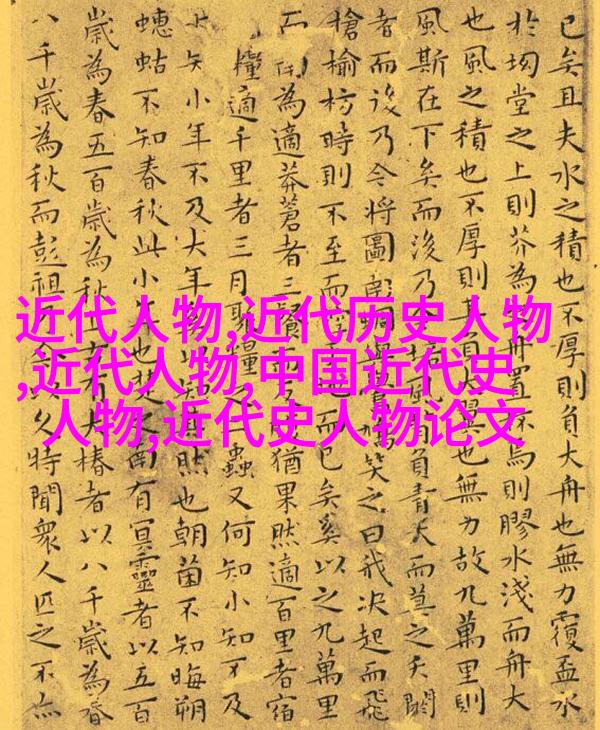 已矣且夫水之積也不厚則負大舟也無力覆盃水
於坳堂之上則芥為舟置焉則膠水淺而舟大
也風之積也不厚則其負大翼也無力故九萬里則
風斯在下矣而後乃今培風背負青天而莫之夭閼
者而後乃今將圖南蜩笑之曰我決起而飛
槍榆枋時則不至而控地而已矣奚以之九萬里
而為適莽蒼者三飡而反腹猶果然適百里者宿
糧適千里者三月聚糧之二蟲又何知小知不及
矢小年不及大年奚以知其然也朝菌不知晦朔
蟪蛄不知春秋此小年也楚之南有冥靈者以五百
歲為春五百歲為秋上古有大椿者以八千歲為春
八千歲為秋而彭祖乃今以久特聞衆人匹之不亦
近代人物,近代历史人物
,近代人物,中国近代史
人物,近代史人物论文